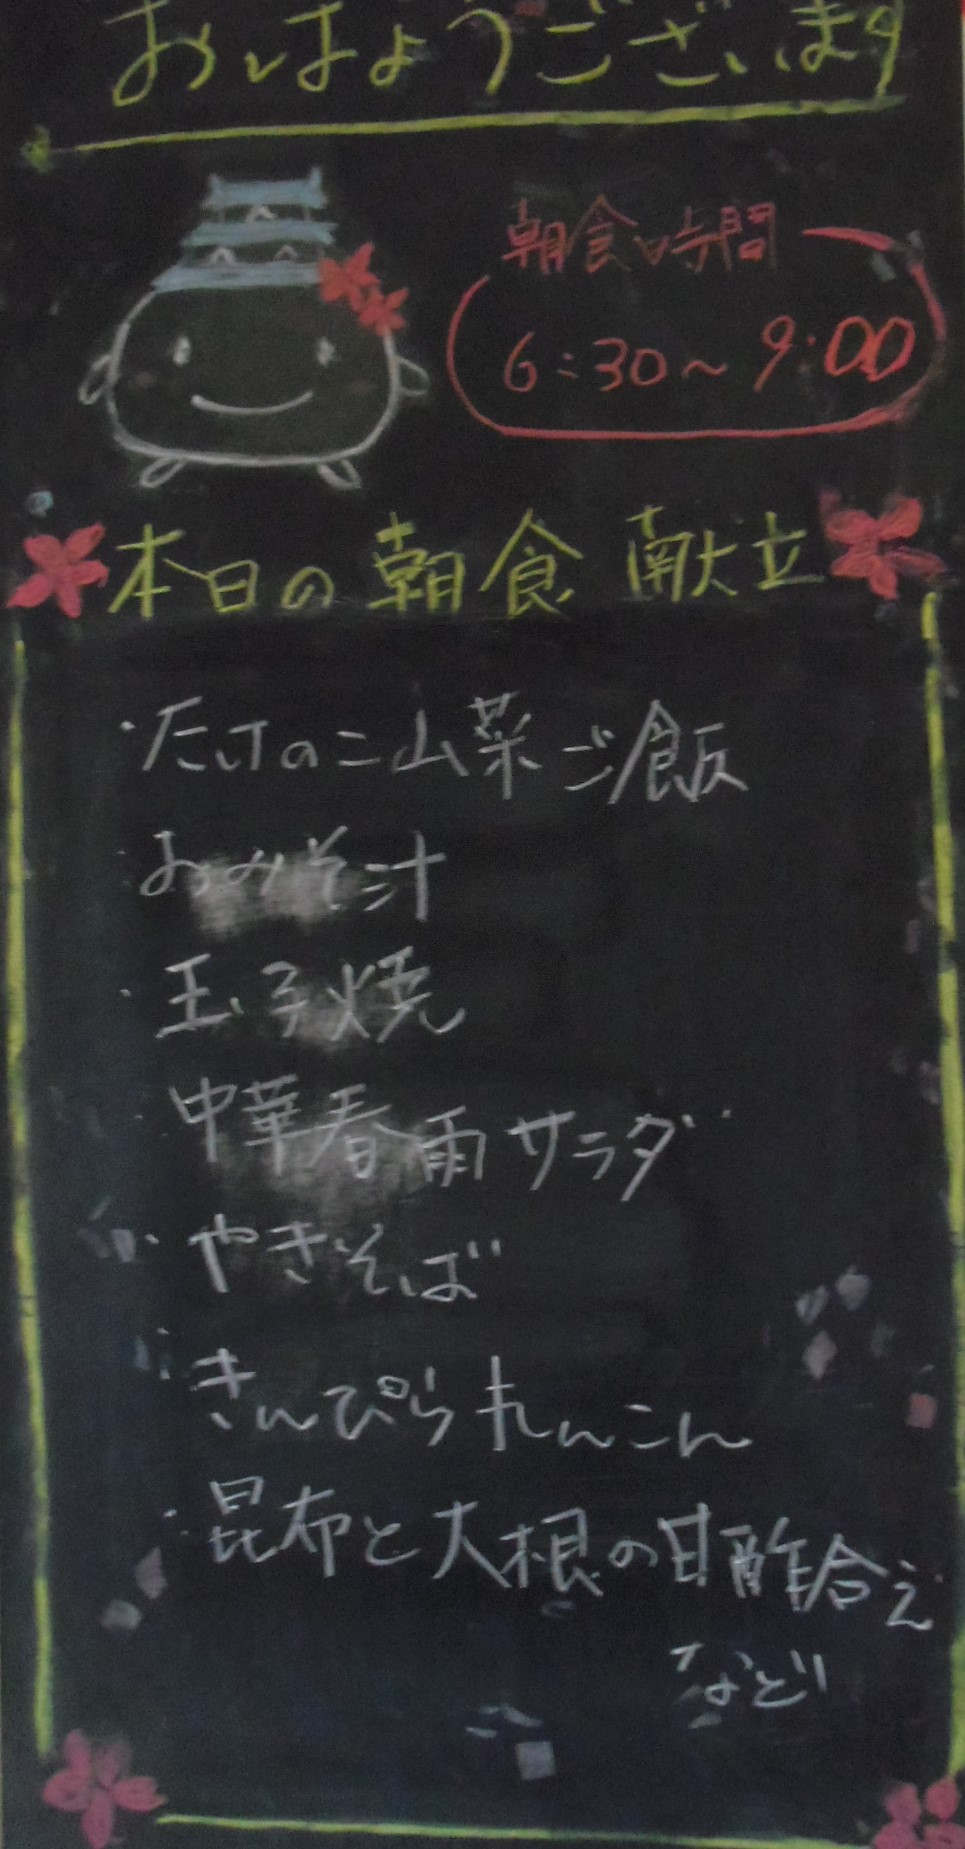 おはようございます
朝食時間
6:30～9:00
本日の朝食 献立
・たけのこ山菜ご飯
・おみそ汁
・玉子焼
中華春雨サラダ
・やきそば
・きんぴられんこん
・昆布と大根の甘酢合え
など